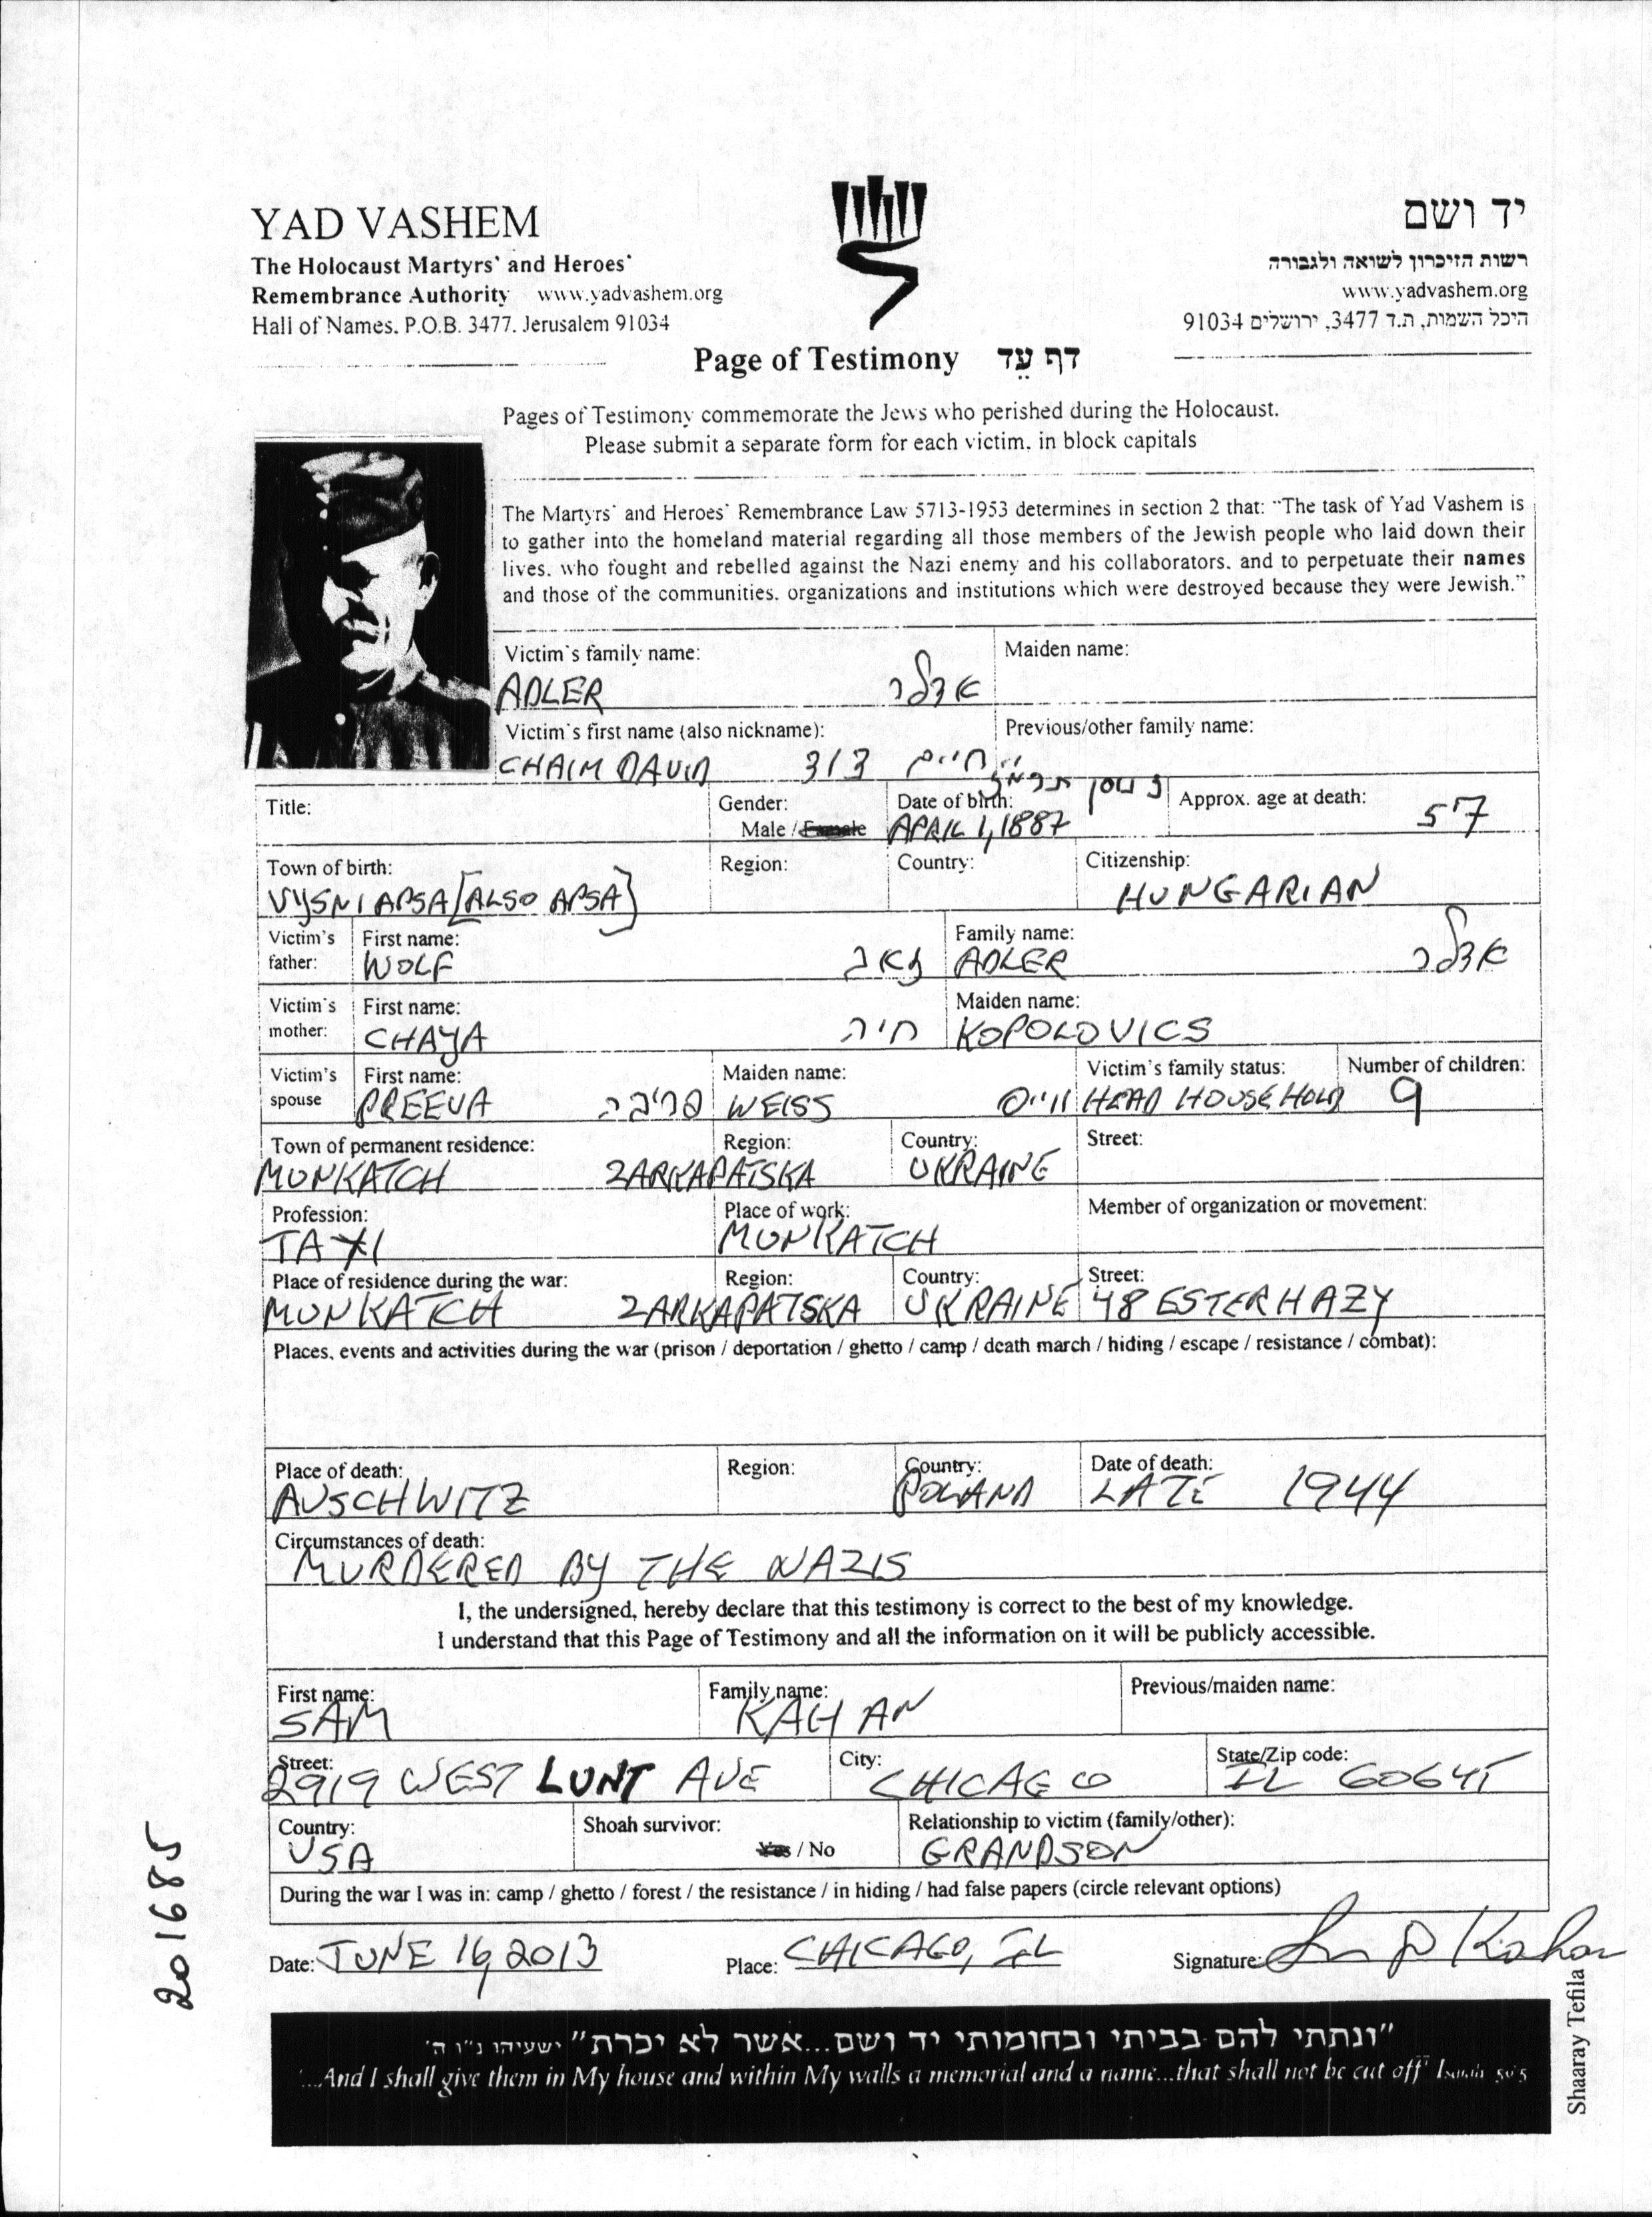 YAD VASHEM
The Holocaust Martyrs' and Heroes'
Remembrance Authority www.yadvashem.org
Hall of Names, P.O.B. 3477, Jerusalem 91034
יד ושם
רשות הזיכרון לשואה ולגבורה
www.yadvashem.org
היכל השמות, ת.ד 3477, ירושלים 91034
Page of Testimony דף עֵד
Pages of Testimony commemorate the Jews who perished during the Holocaust.
Please submit a separate form for each victim, in block capitals
The Martyrs' and Heroes' Remembrance Law 5713-1953 determines in section 2 that: "The task of Yad Vashem is
to gather into the homeland material regarding all those members of the Jewish people who laid down their
lives, who fought and rebelled against the Nazi enemy and his collaborators, and to perpetuate their names
and those of the communities, organizations and institutions which were destroyed because they were Jewish."
Victim's family name: Maiden name:
ADLER אדלר
Victim's first name (also nickname): Previous/other family name:
CHAIM DAVID חיים דוד
Title: Gender: Date of birth: ניסן Approx. age at death:
Male / Female APRIL 1, 1887 57
Town of birth: Region: Country: Citizenship:
VYSNI APSA [ALSO APSA] HUNGARIAN
Victim's father: First name: Family name:
WOLF זאב ADLER אדלר
Victim's mother: First name: Maiden name:
CHAYA חיה KOPOLOVICS
Victim's spouse First name: Maiden name: Victim's family status: Number of children:
PREEVA פריבה WEISS ווייס HEAD HOUSEHOLD 9
Town of permanent residence: Region: Country: Street:
MUNKATCH ZARKAPATSKA UKRAINE
Profession: Place of work: Member of organization or movement:
TAXI MUNKATCH
Place of residence during the war: Region: Country: Street:
MUNKATCH ZARKAPATSKA UKRAINE 48 ESTERHAZY
Places, events and activities during the war (prison / deportation / ghetto / camp / death march / hiding / escape / resistance / combat):
Place of death: Region: Country: Date of death:
AUSCHWITZ POLAND LATE 1944
Circumstances of death:
MURDERED BY THE NAZIS
I, the undersigned, hereby declare that this testimony is correct to the best of my knowledge.
I understand that this Page of Testimony and all the information on it will be publicly accessible.
First name: Family name: Previous/maiden name:
SAM KAHAN
Street: City: State/Zip code:
2919 WEST LUNT AVE CHICAGO IL 60645
Country: Shoah survivor: Relationship to victim (family/other):
USA Yes / No GRANDSON
During the war I was in: camp / ghetto / forest / the resistance / in hiding / had false papers (circle relevant options)
Date: JUNE 16, 2013 Place: CHICAGO, IL Signature: Kahan
"ונתתי להם בביתי ובחומותי יד ושם...אשר לא יכרת" ישעיהו נ"ו ה'
'...And I shall give them in My house and within My walls a memorial and a name...that shall not be cut off' Isaiah 56'5
201685
Shaaray Tefila